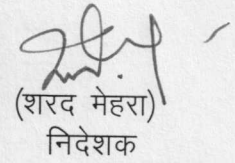 (शरद मेहरा)
निदेशक